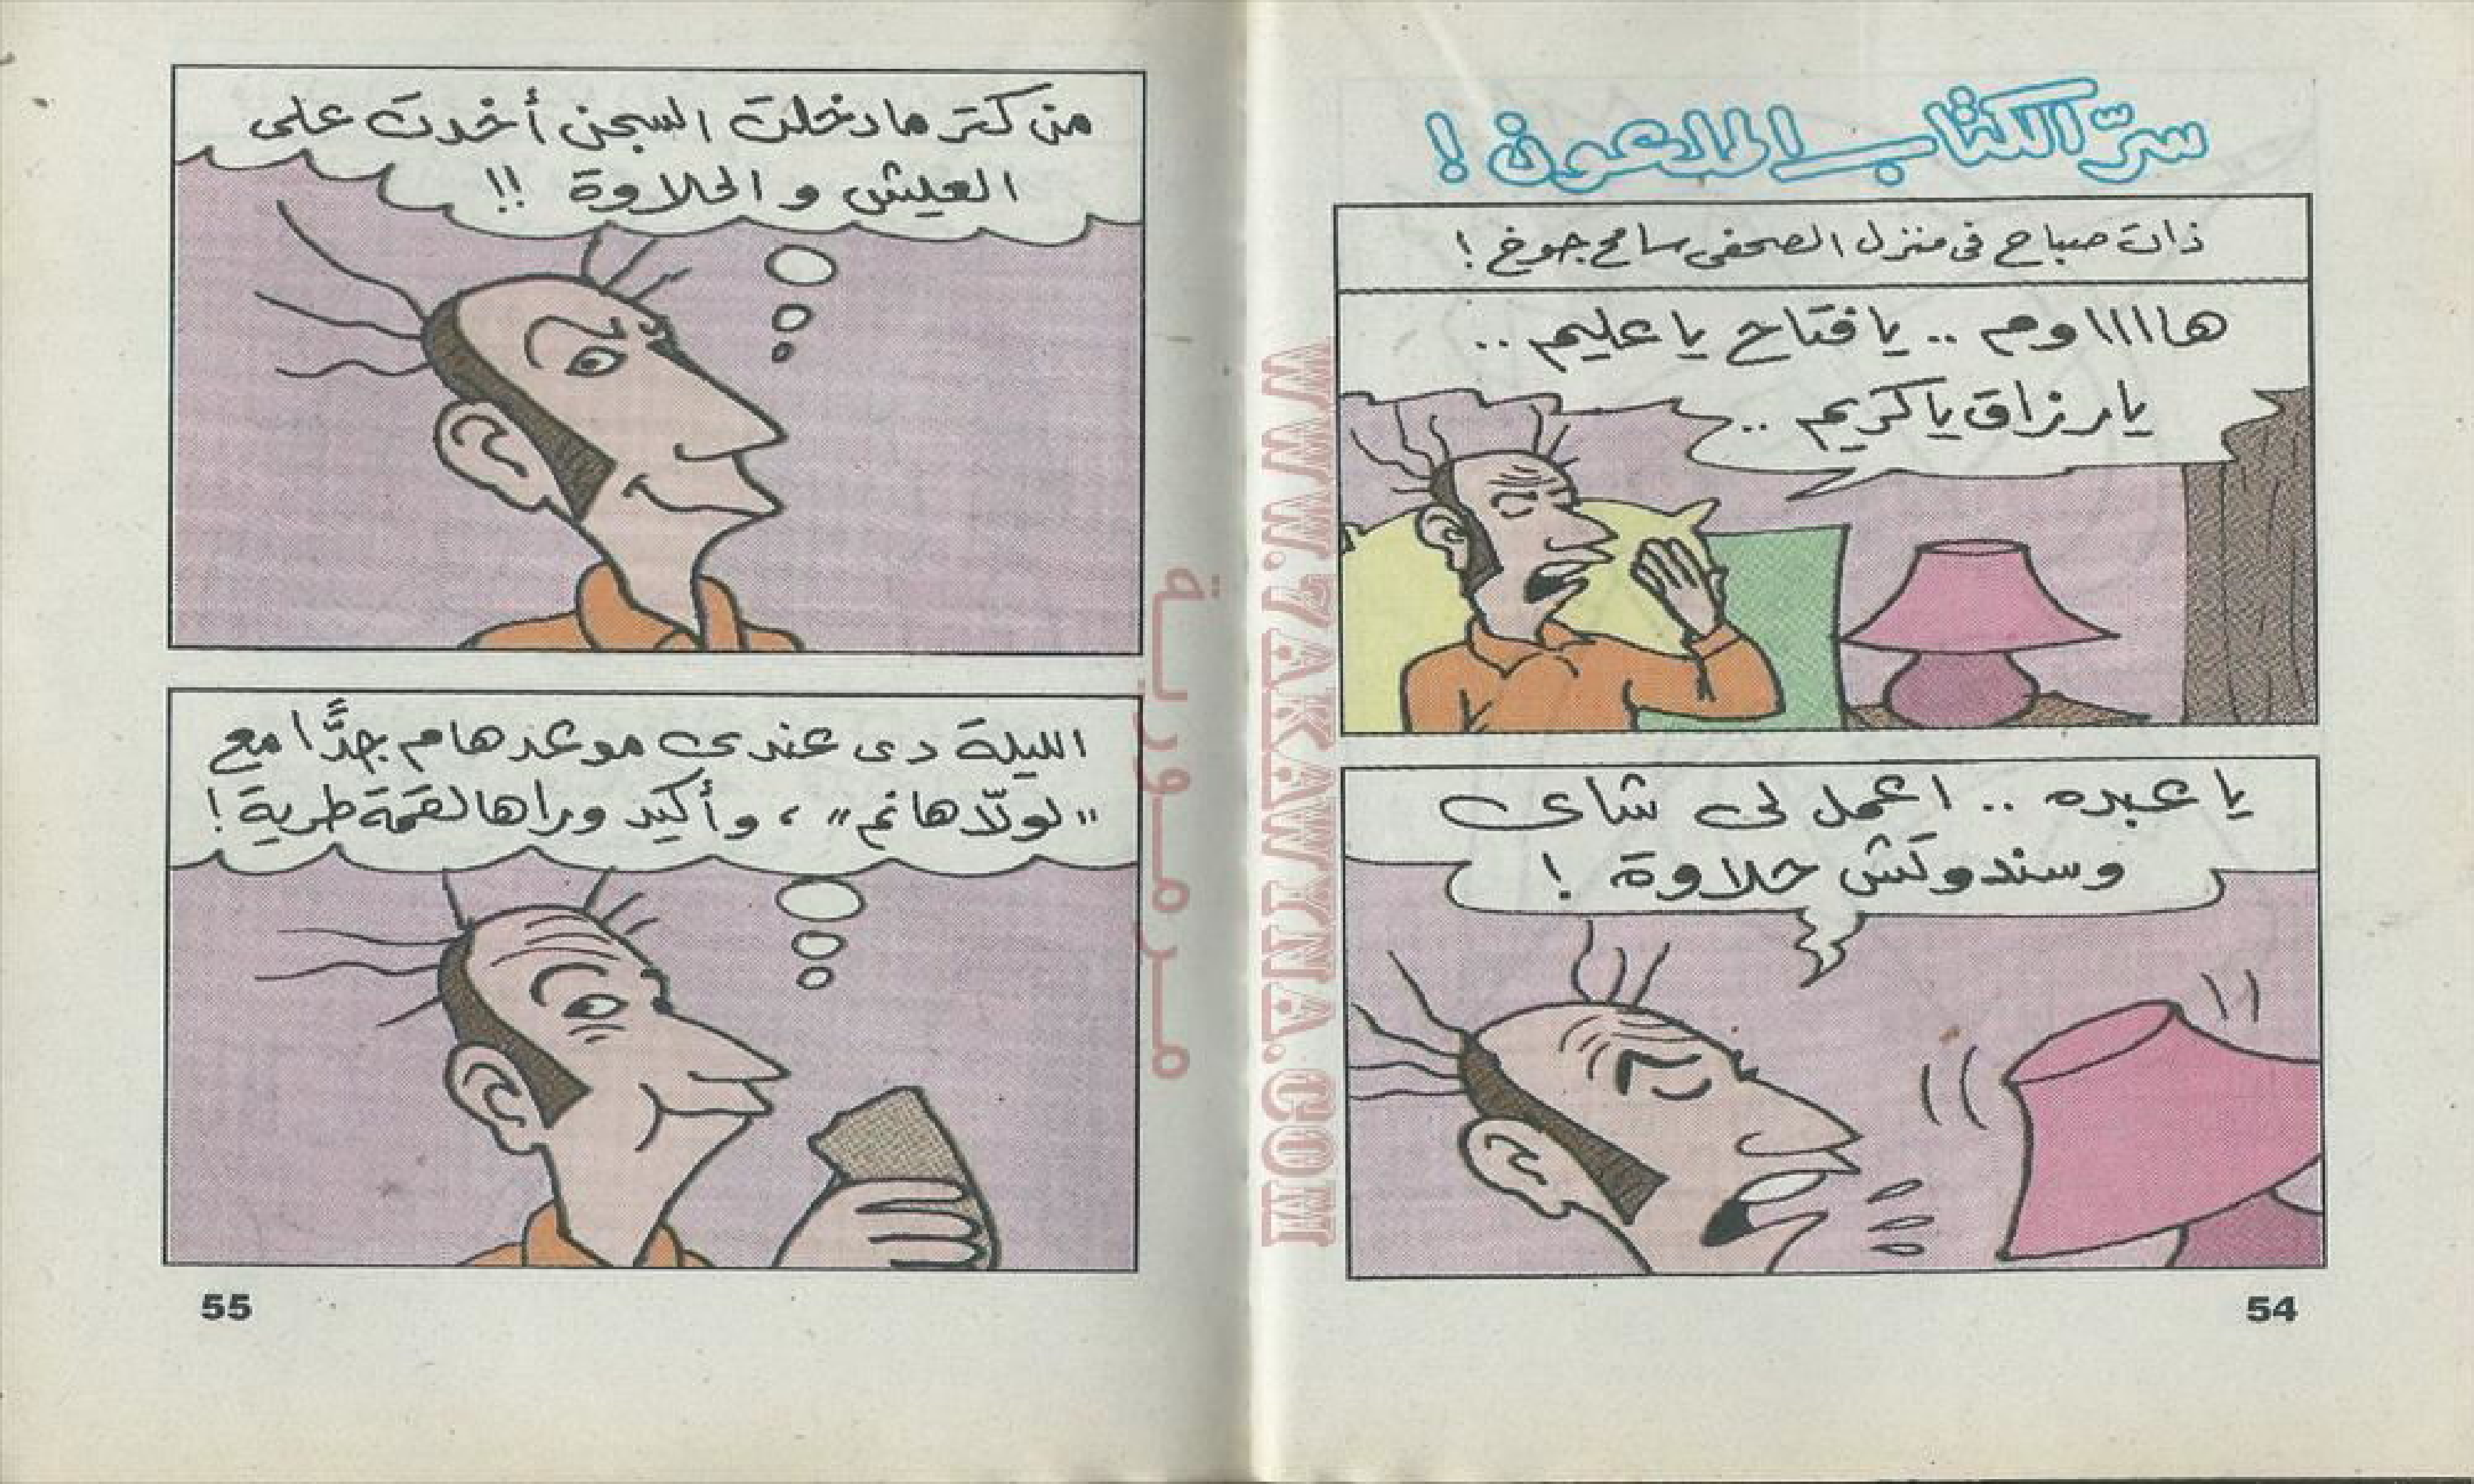 سرّ الكتاب الملعون !
ذات صباح فى منزل الصحفى سامح جوخ !
هااااوم .. يا فتاح يا عليم ..
يا رزاق يا كريم ..
يا عبده .. اعمل لى شاى
وسندوتش حلاوة !
54
من كتر ما دخلت السجن أخدت على
العيش و الحلاوة !!
الليلة دى عندى موعد هام جدًّا مع
"لولّا هانم" ، وأكيد وراها لقمة طرية !
55
WWW.7AKAWYINA.COM
مرمورية